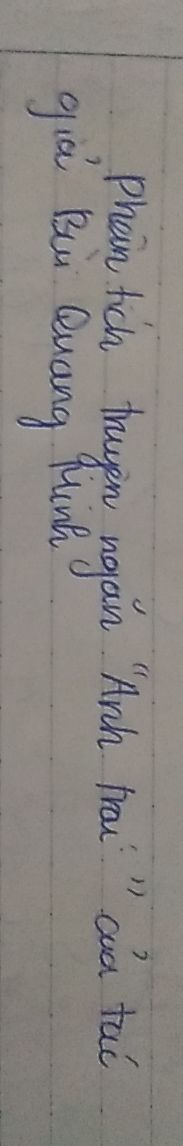 Phân tích truyện ngắn "Anh trai" của tác
giả Bùi Quang Minh